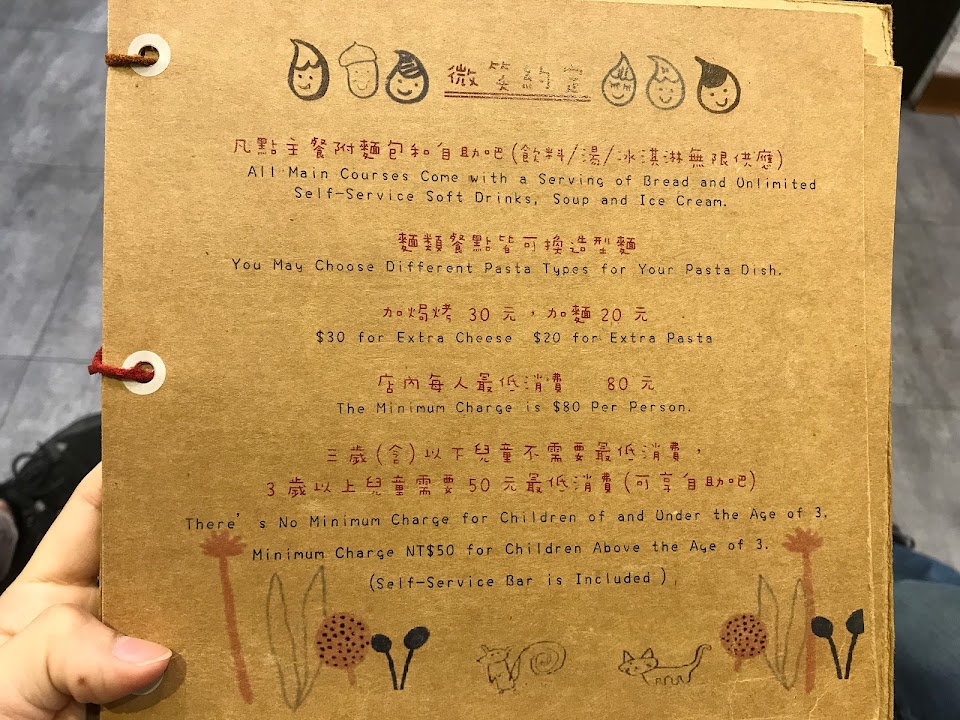 微笑約定
凡點主餐附麵包和自助吧(飲料/湯/冰淇淋無限供應)
All Main Courses Come with a Serving of Bread and Unlimited
Self-Service Soft Drinks, Soup and Ice Cream.
麵類餐點皆可換造型麵
You May Choose Different Pasta Types for Your Pasta Dish.
加焗烤 30 元，加麵 20 元
$30 for Extra Cheese $20 for Extra Pasta
店內每人最低消費 80 元
The Minimum Charge is $80 Per Person.
三歲(含)以下兒童不需要最低消費，
3 歲以上兒童需要 50 元最低消費(可享自助吧)
There's No Minimum Charge for Children of and Under the Age of 3.
Minimum Charge NT$50 for Children Above the Age of 3.
(Self-Service Bar is Included)